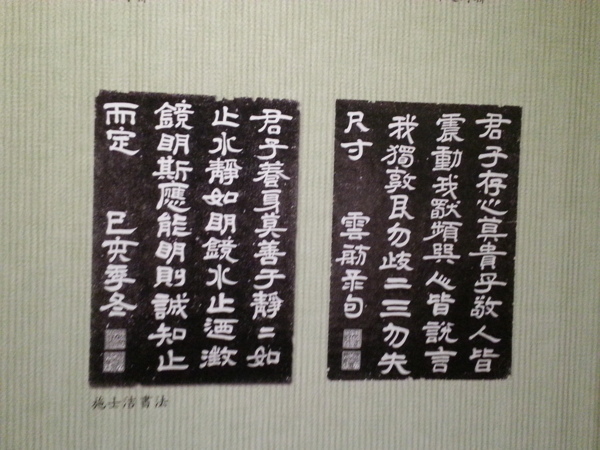 君子存心莫貴乎敬人皆
震動我頻巽人皆說言
我獨敦艮勿歧二三勿失
尺寸 雲舫句
君子養身莫善于靜二如
止水靜如明鏡水止迺澂
鏡明斯應能明則誠知止
而定 己亥季冬
施士洁書法